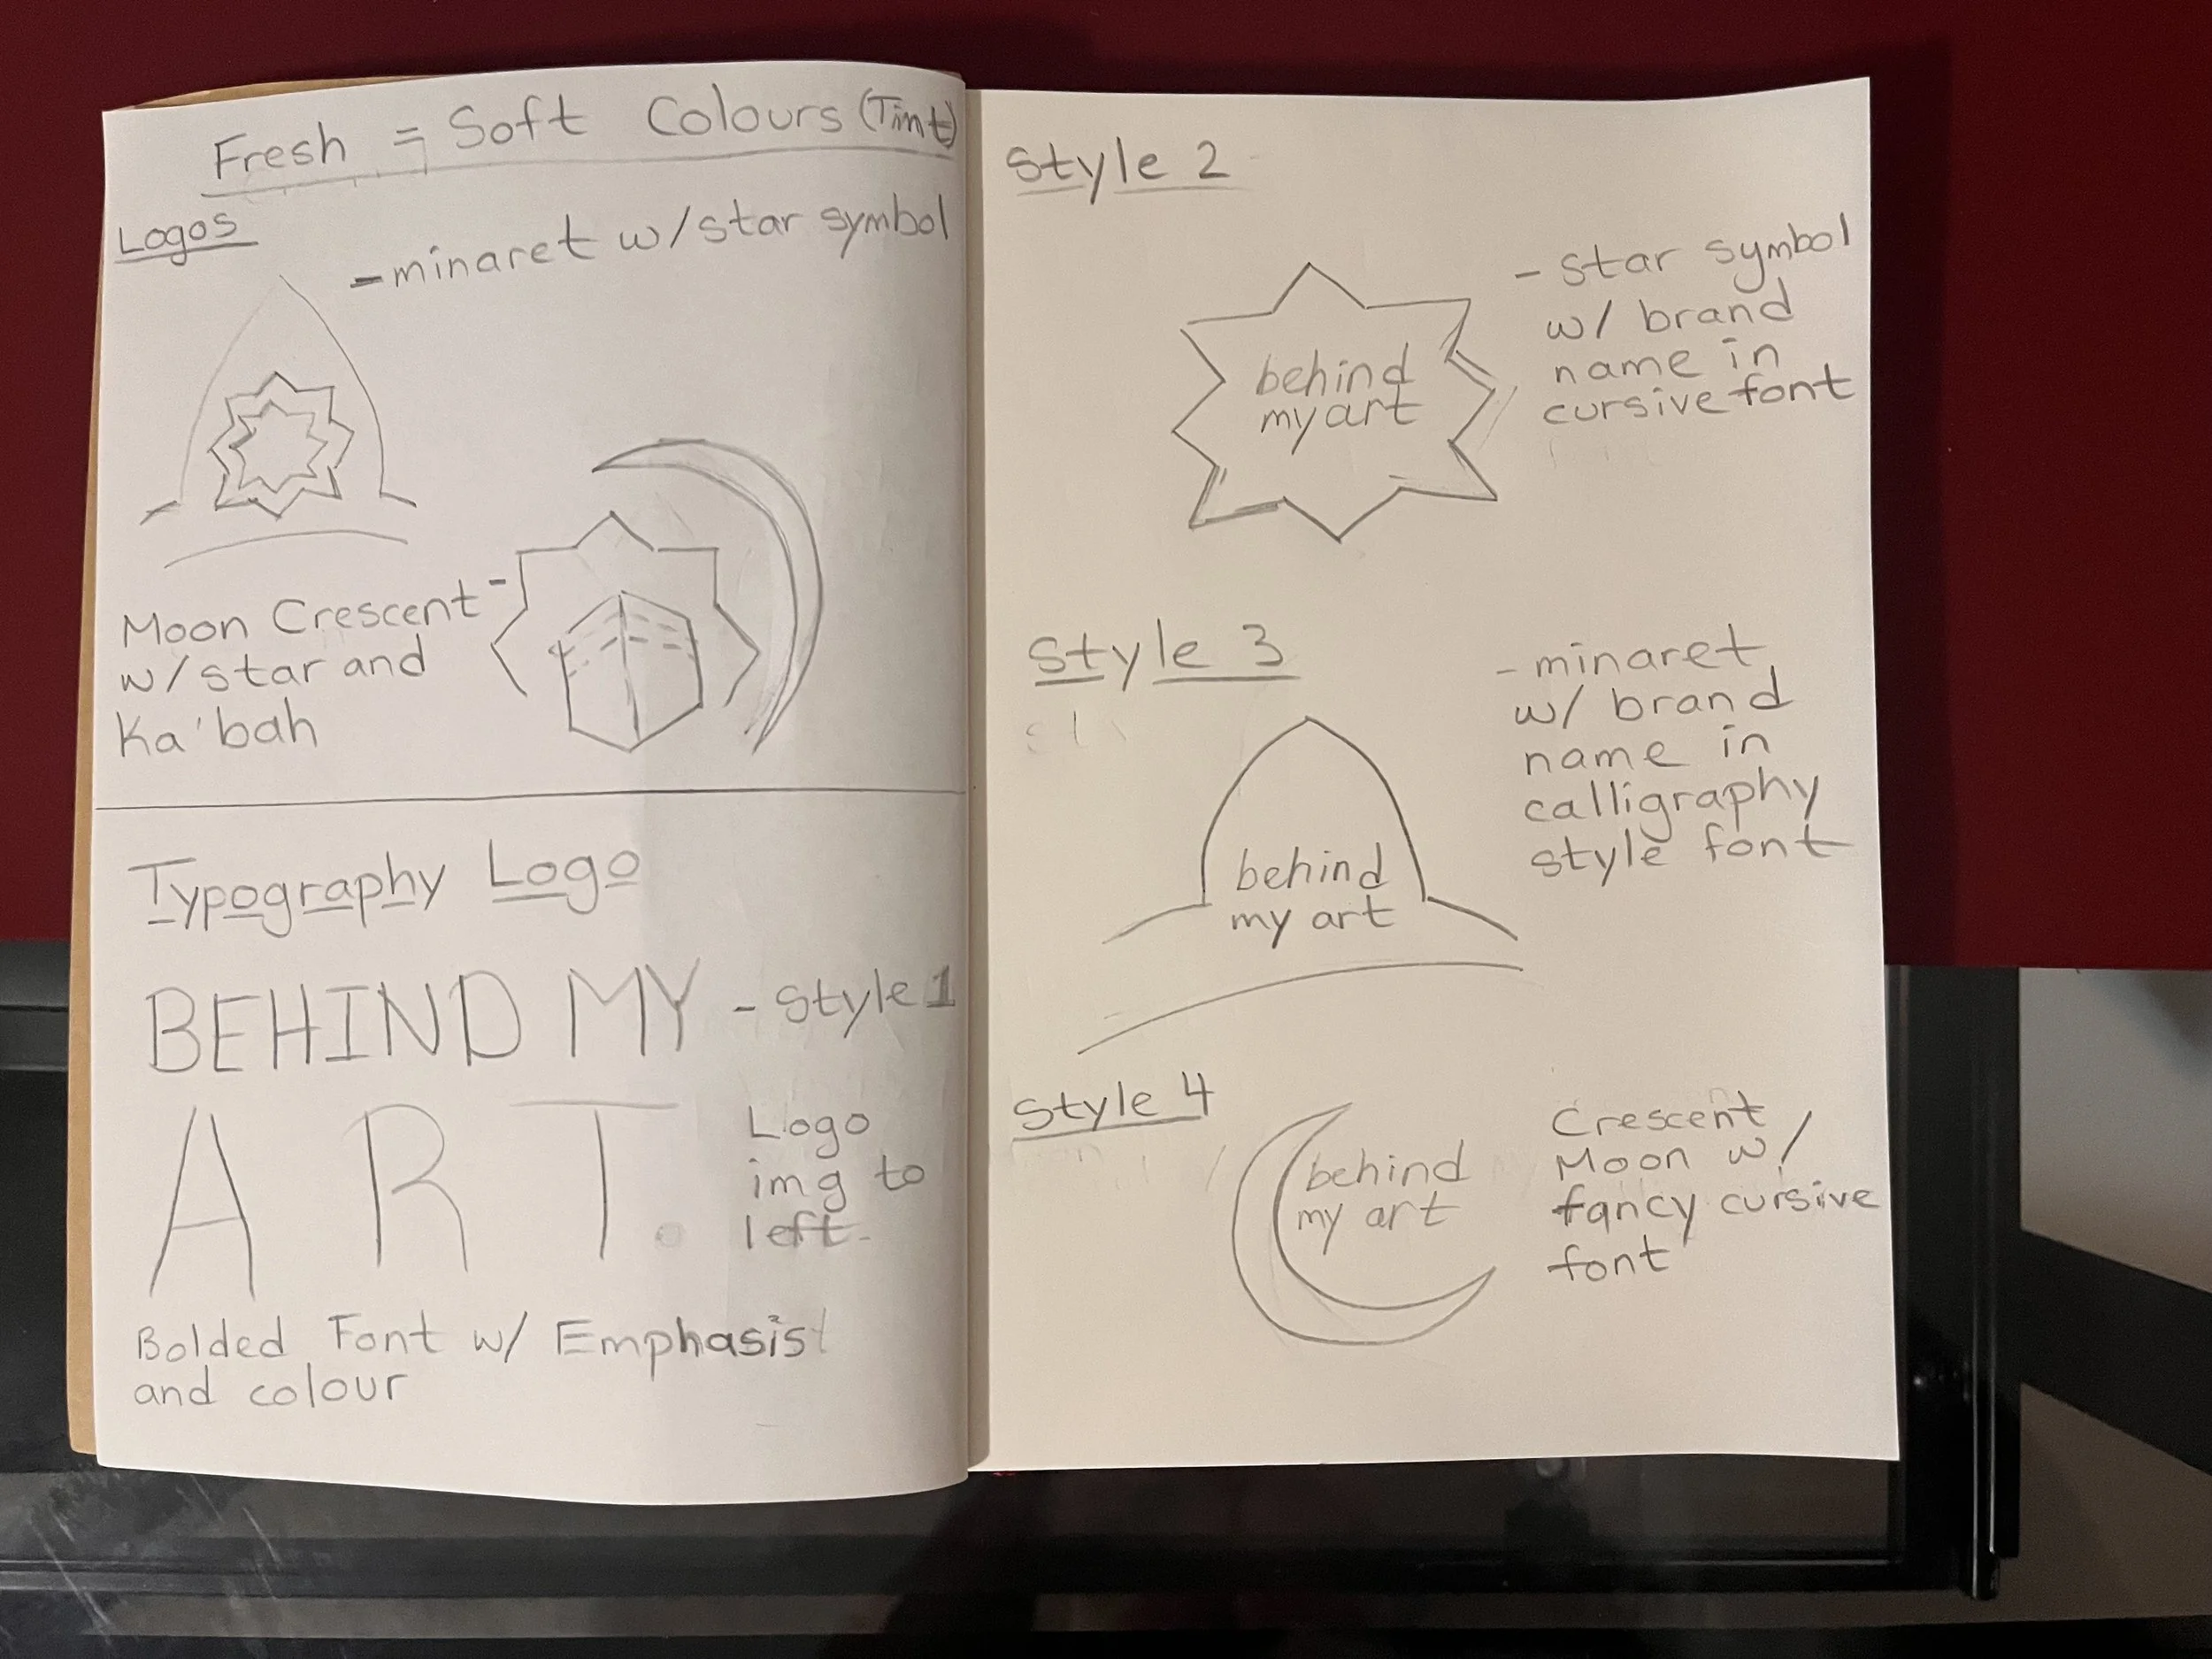 Fresh = Soft Colours (Tint)
Logos
- minaret w/ star symbol
Moon Crescent -
w/ star and
Ka'bah
Typography Logo
BEHIND MY - Style 1
ART.
Logo
img to
left.
Bolded Font w/ Emphasis
and colour
Style 2
- star symbol
w/ brand
name in
cursive font
behind
my art
Style 3
- minaret
w/ brand
name in
calligraphy
style font
behind
my art
Style 4
behind
my art
Crescent
Moon w/
fancy cursive
font